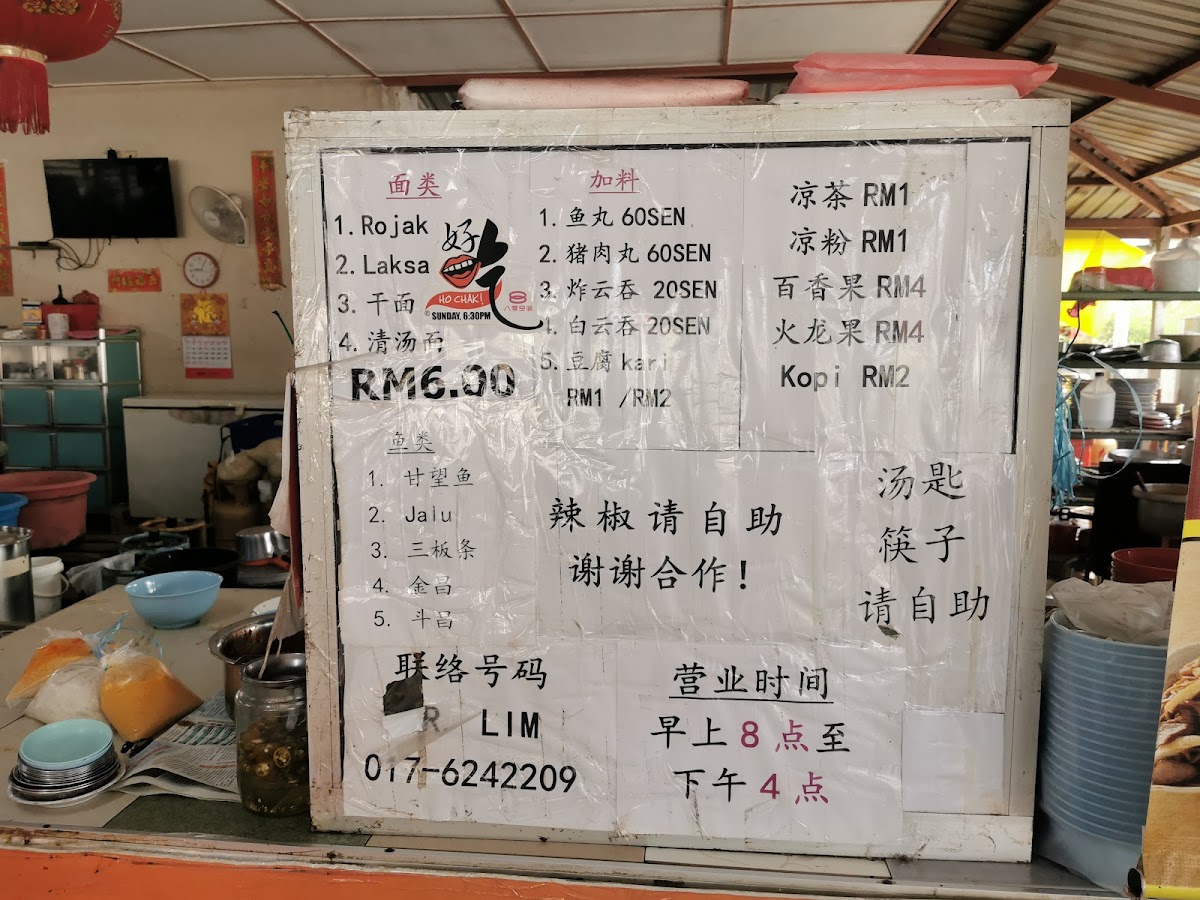 面类
1. Rojak
2. Laksa
3. 干面
4. 清汤面
RM6.00
好气
HO CHAK!
SUNDAY, 6:30PM
加料
1. 鱼丸 60SEN
2. 猪肉丸 60SEN
3. 炸云吞 20SEN
4. 白云吞 20SEN
5. 豆腐 kari
RM1 /RM2
凉茶 RM1
凉粉 RM1
百香果 RM4
火龙果 RM4
Kopi RM2
鱼类
1. 甘望鱼
2. Jalu
3. 三板条
4. 金昌
5. 斗昌
辣椒请自助
谢谢合作!
汤匙
筷子
请自助
联络号码
R LIM
017-6242209
营业时间
早上 8 点至
下午 4 点